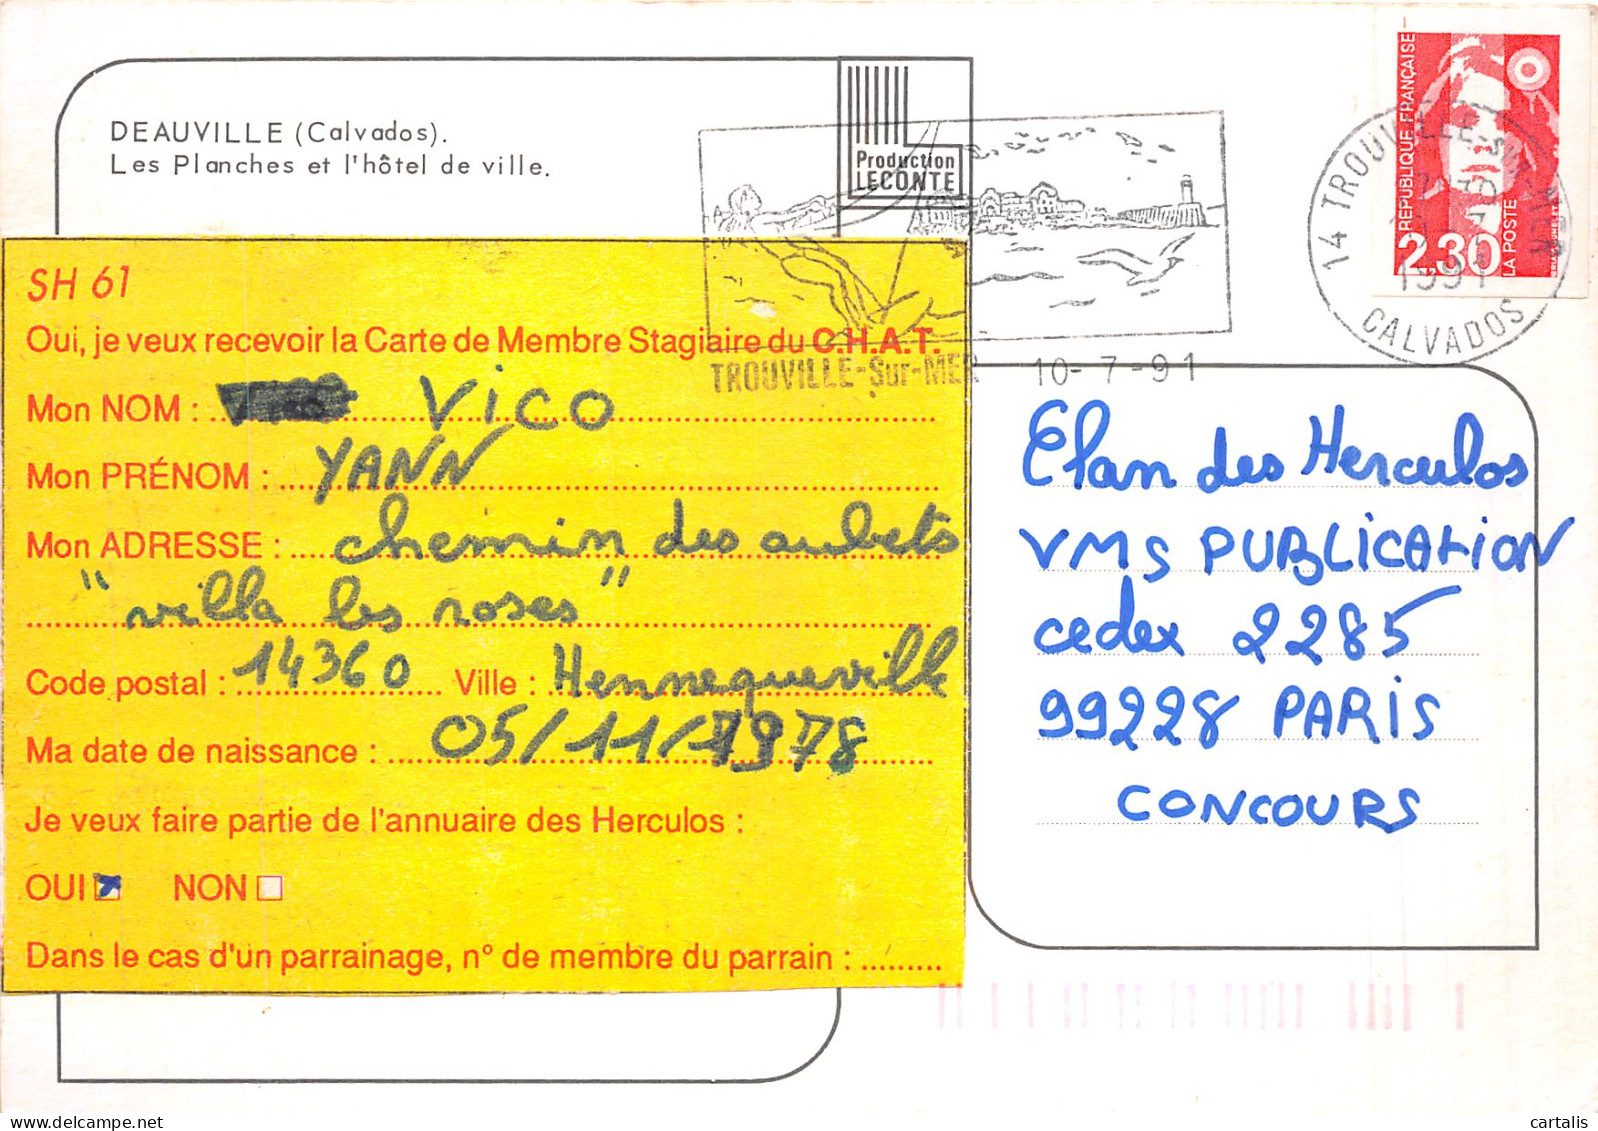 DEAUVILLE (Calvados).
Les Planches et l'hôtel de ville.
Production
LECONTE
RÉPUBLIQUE FRANÇAISE
2,30
LA POSTE
14 TROUVILLE-SUR-MER
1991
CALVADOS
TROUVILLE-Sur-MER 10-7-91
SH 61
Oui, je veux recevoir la Carte de Membre Stagiaire du C.H.A.T.
Mon NOM : VICO
Mon PRÉNOM : YANN
Mon ADRESSE : chemin des aubets
"villa les roses"
Code postal : 14360 Ville : Hennequeville
Ma date de naissance : 05/11/1978
Je veux faire partie de l'annuaire des Herculos :
OUI NON
Dans le cas d'un parrainage, n° de membre du parrain : .........
Elan des Herculos
VMS PUBLICATION
cedex 2285
99228 PARIS
CONCOURS
cartalis